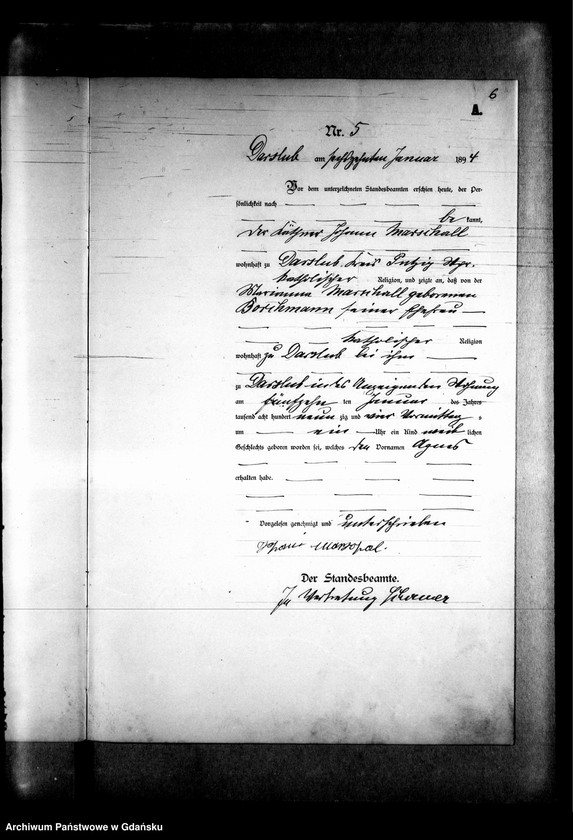 6
A.
Nr. 5
Darslub am sechszehnten Januar 1894
Vor dem unterzeichneten Standesbeamten erschien heute, der Per-
sönlichkeit nach
be kannt,
der Käthner Johann Marschall
wohnhaft zu Darslub Kreis Putzig Wpr.
katholischer Religion, und zeigte an, daß von der
Marianna Marschall geborenen
Borchmann seiner Ehefrau
katholischer Religion
wohnhaft zu Darslub bei ihm
zu Darslub in des Anzeigenden Wohnung
am fünfzehn ten Januar des Jahres
tausend acht hundert neun zig und vier Vormittag s
um ein Uhr ein Kind weib lichen
Geschlechts geboren worden sei, welches den Vornamen Agnes
erhalten habe.
Vorgelesen genehmigt und unterschrieben
Der Standesbeamte.
In Vertretung
Archiwum Państwowe w Gdańsku